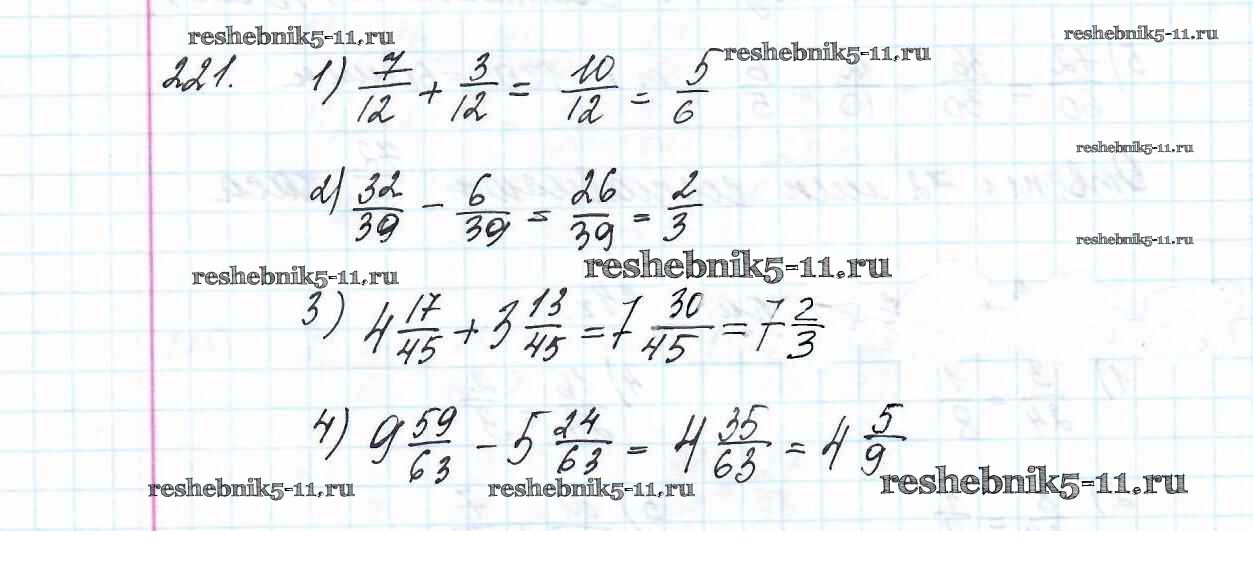 reshebnik5-11.ru reshebnik5-11.ru reshebnik5-11.ru
221. 1) 7/12 + 3/12 = 10/12 = 5/6
reshebnik5-11.ru
2) 32/39 - 6/39 = 26/39 = 2/3
reshebnik5-11.ru
reshebnik5-11.ru reshebnik5-11.ru
3) 4 17/45 + 3 13/45 = 7 30/45 = 7 2/3
4) 9 59/63 - 5 24/63 = 4 35/63 = 4 5/9
reshebnik5-11.ru reshebnik5-11.ru reshebnik5-11.ru